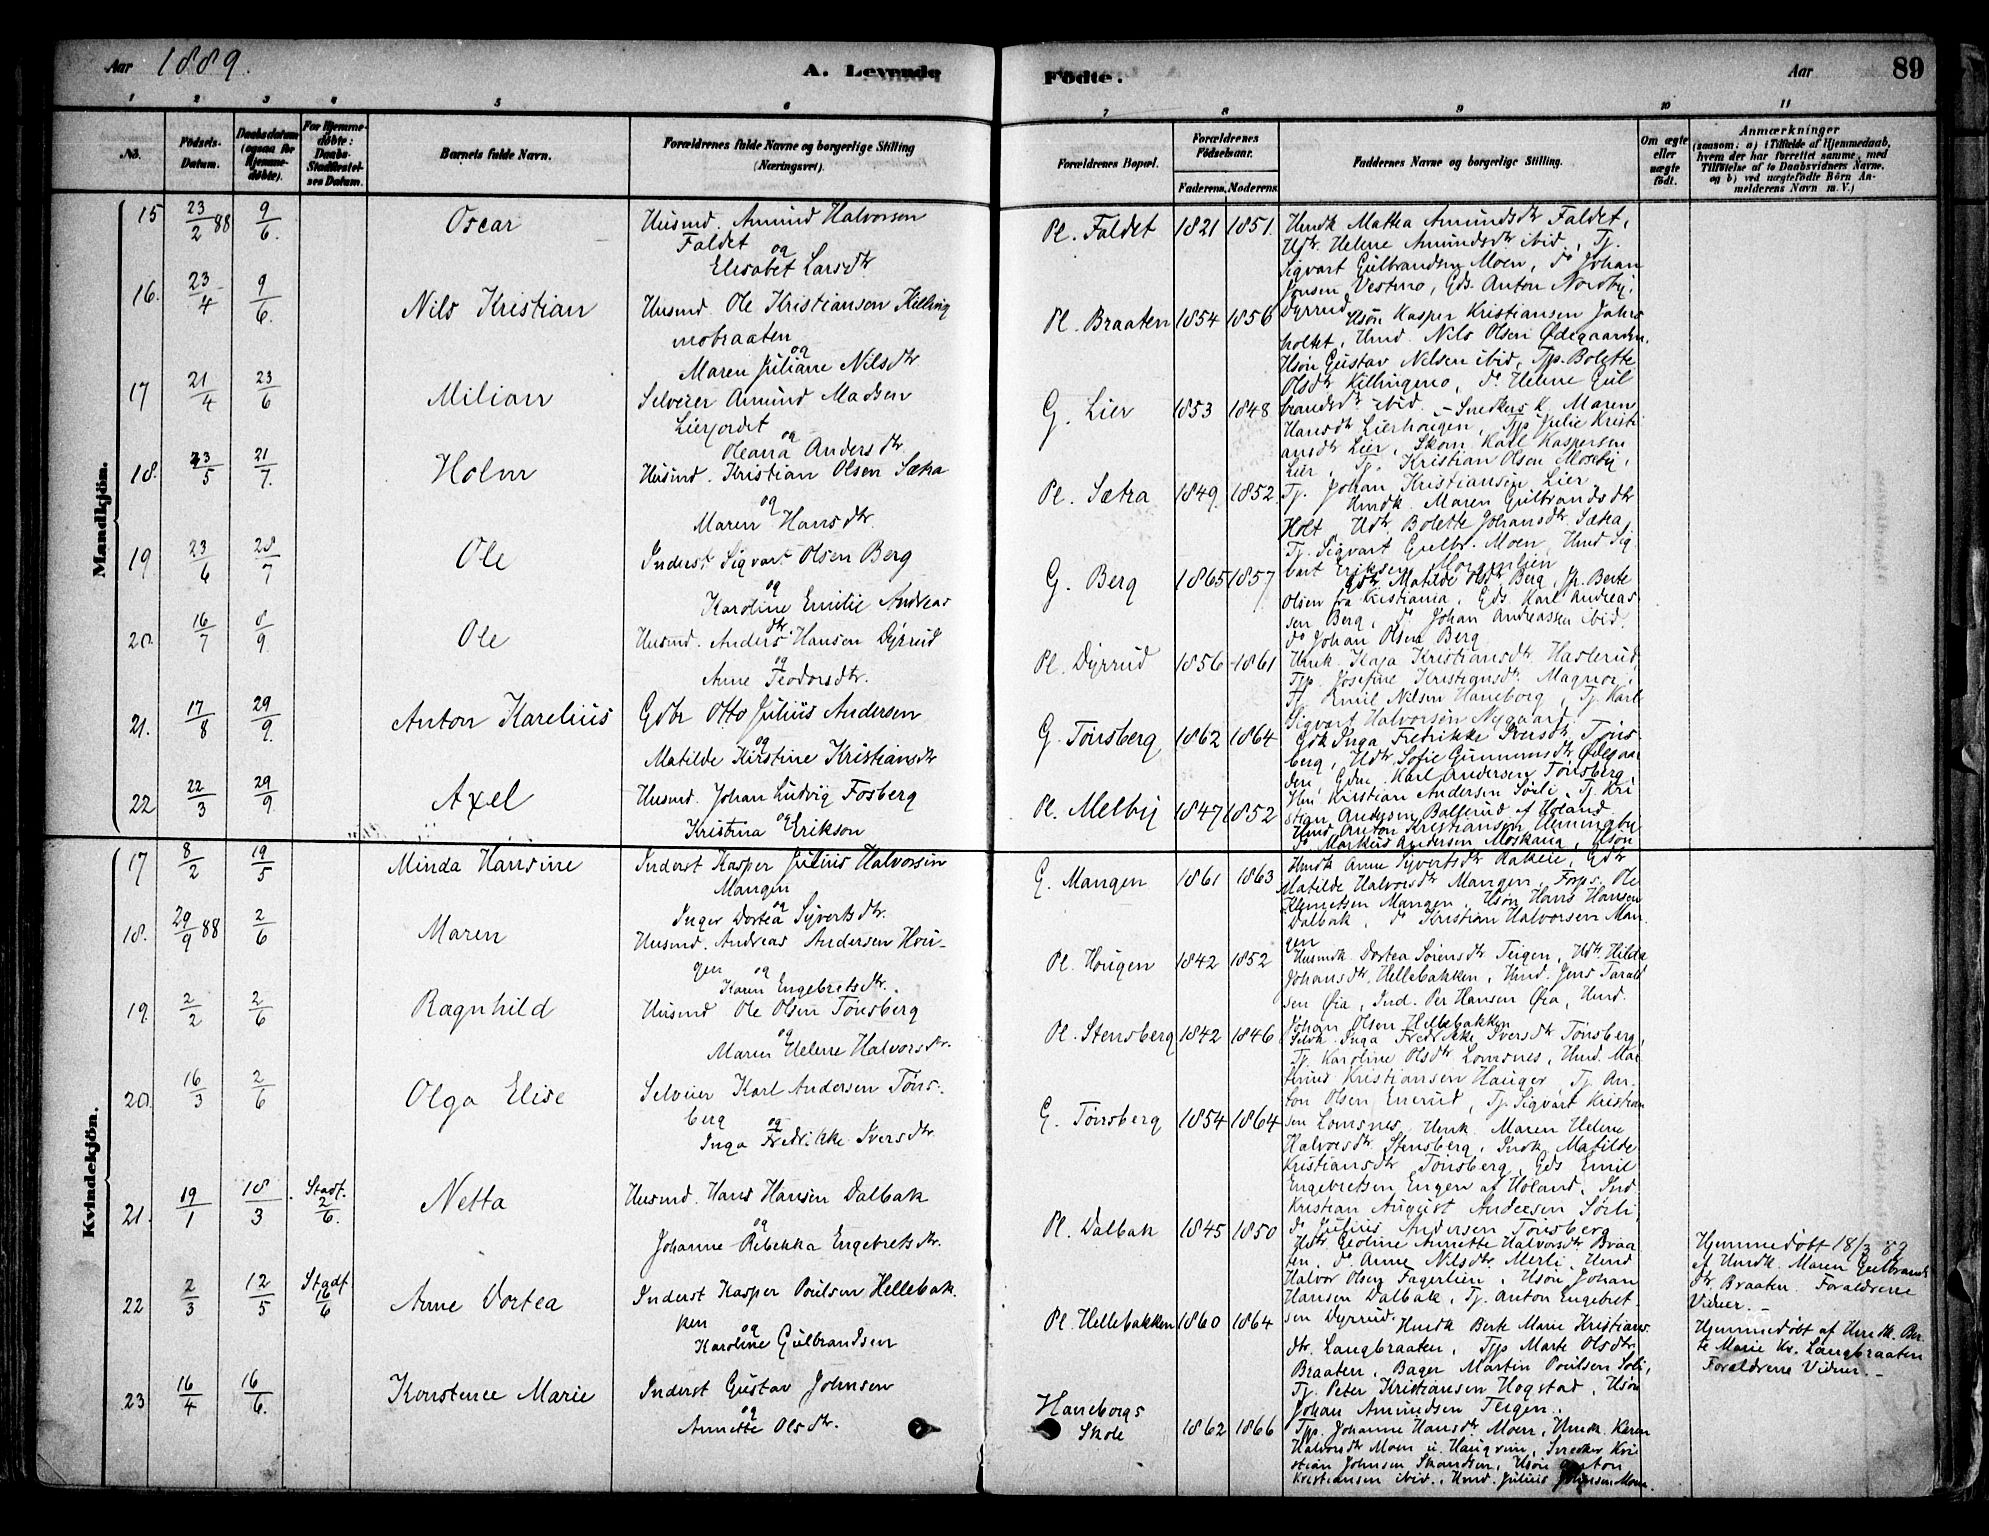 Aar 1889.
A. Levende
Födte.
Aar
89
1 2 3 4 5 6 7 8 9 10 11
No.
Födsels-Datum.
Daabsdatum (ogsaa for Hjemmedöbte).
For Hjemmedöbte: Daabs-Stadfæstelses Datum.
Barnets fulde Navn.
Forældrenes fulde Navne og borgerlige Stilling (Næringsvei).
Forældrenes Bopæl.
Forældrenes Födselsaar.
Faderens. Moderens.
Faddernes Navne og borgerlige Stilling.
Om ægte eller uægte födt.
Anmærkninger
(saasom: a) i Tilfælde af Hjemmedaab, hvem der har forrettet samme, med Tilföielse af to Daabsvidners Navne. og b) ved uægtefödte Börn Anmelderens Navn m. V.)
Mandkjön.
15 23/2 88 9/6. Oscar Husmd. Amund Halvorsen
Faldet
og
Elisabet Larsdtr
Pl. Faldet 1821 1851. Hmdk Mathea Amundsdtr Faldet,
Udtr. Helene Amundsdtr ibid., Tj.
Sigvart Gulbrandsen Moen, do Johan
Jonsen Vestmo, Gds. Anton Nordby.
16. 23/4 9/6. Nils Kristian Husmd. Ole Kristiansen Killing
mobraaten
og
Maren Juliane Nilsdtr
Pl. Braaten 1854 1856 Dyrrud
Hsön Kasper Kristiansen Jahrs
holtet, Hmd. Nils Olsen Ødegaarden,
Hsön Gustav Nilsen ibid, Tjp. Bolette
Olsdtr Killingmo, do Helene Gul
brandsdtr ibid.
17 21/4 23/6 Milian Selveier Amund Madsen
Lierjordet
og
Oleana Andersdtr
G. Lier 1853 1848 Snedkers k. Maren
Hansdtr Lierhougen, Tjp Julie Kristi
ansdtr Lier, Skom. Karl Kaspersen
Lier, Tj. Kristian Olsen Moseby,
Tj. Johan Kristiansen Lier
18. 23/5 21/7. Holm Husmd. Kristian Olsen Sætra
og
Maren Hansdtr.
Pl. Sætra 1849. 1852. Hmdk Maren Gulbrandsdtr
Holt, Udtr Bolette Johansdtr Sætra,
Tj. Sigvart Gulbr. Moen, Hmd Sig
vart Eriksen
19 23/6 28/7 Ole Inderst. Sigvart Olsen Berg
og
Karoline Emilie Andreas
dtr.
G. Berg 1865 1857 Gdtr. Matilde Olsdtr Berg, Jp. Berte
Olsen fra Kristiania, Gds. Karl Andreas
sen Berg, do Johan Andreassen ibid.
do Johan Olsen Berg
20. 16/7 8/9. Ole Husmd. Anders Hansen Dyrrud
og
Anne Teodorsdtr.
Pl. Dyrrud 1856 1861 Hmk. Kaja Kristiansdtr Hasterud,
Tjp. Josefine Kristiansdtr Magnor,
Tj. Emil Nilsen Haneborg, Tj. Karl
Sigvart Halvorsen Nygaard
21. 17/8 29/9. Anton Karelius Gdbr Otto Julius Andersen
og
Matilde Kirstine Kristiansdtr
G. Tönsberg 1862 1864 Gdk Inga Fredrikke Iversdtr Töns-
berg, Udtr Sofie Gunmunsdtr Ødegaar
den, Gdm. Karl Andersen Tönsberg,
Hm. Kristian Andersen Sörli, Tj. Kri
stian Andersen Ballerud af Höland
22 22/3 29/9. Axel Husmd. Johan Ludvig Fosberg
og
Kristina Erikson
Pl. Melby 1847 1852 Hmd. Anton Kristiansen Hemingby
do Markus Andersen Moskaug, Hsön
Kvindekjön.
17 8/2 19/5 Minda Hansine Inderst Kasper Julius Halvorsen
Mangen
og
Inger Dortea Syvertsdtr.
G. Mangen 1861 1863 Hmdk Anne Syvertsdtr Rakeie, Gdtr
Matilde Halvorsdtr Mangen, Forps. Ole
Klemetsen Mangen, Hsön Hans Hansen
Dalbak, do Kristian Halvorsen Man-
gen
18. 29/9 88 2/6 Maren Husmd. Andreas Andersen Hou-
gen og
Karen Engebretsdtr.
Pl. Hougen 1842 1852 Husmdk. Dortea Sörensdtr Teigen, Udtr. Hilda
Johansdtr. Hellebakken, Hmd. Jens Tarald
sen Øia, Ind. Per Hansen Øia, Hmd.
Johan Olsen Hellebakken
19. 2/2 2/6 Ragnhild Husmd Ole Olsen Tönsberg
og
Maren Helene Halvorsdtr.
Pl. Stensberg 1842 1846 Selvk. Inga Fredrikke Iversdtr Tönsberg,
Tj. Karoline Olsdtr Lomsnes, Hmd. Mat
hias Kristiansen Hauger, Tj. An-
ton Olsen Enerud, Tj. Sigvart Kristian
sen Lomsnes
20. 16/3 2/6 Olga Elise Selveier Karl Andersen Töns-
berg og
Inga Fredrikke Iversdtr.
G. Tönsberg 1854 1864 Hmk. Maren Helene
Halvorsdtr Stensberg, Indk Matilde
Kristiansdtr Tönsberg, Gds Emil
Engebretsen Engen af Höland, Ind.
Kristian August Andersen Sörli,
do Julius Andersen Tönsberg
21. 19/1 18/3 Stadf. 2/6. Netta Husmd. Hans Hansen Dalbak
og
Johanne Rebekka Engebretsdtr.
Pl. Dalbak 1845 1850 Udtr Geoline Annette Halvorsdtr Braa
ten, do Anne Nilsdtr Merli, Hmd
Halvor Olsen Fagerlien, Hsön Johan
Hansen Dalbak, Tj. Anton Engebret-
sen Dyrrud.
Hjemmedöbt 18/3 89
af Hmdk. Maren Gulbrands
dtr. Braaten. Forældrene
Vidner. -
22 2/3 12/5 Stadf 16/6 Anne Dortea Inderst Kasper Poulsen Hellebak-
ken
og
Karoline Gulbrandsen
Pl. Hellebakken 1860 1864 Hmdk Berte Marie Kristians-
dtr. Langbraaten, Tjp Marte Olsdtr
Braaten, Bager Martin Poulsen Soli,
Tj. Peter Kristiansen Hogstad, Hsön
Johan Amundsen Teigen.
Hjemmedöbt af Hmdk. Ber-
te Marie Kr. Langbraaten
Forældrene Vidner. -
23 16/4 16/6. Konstence Marie Inderst Gustav Johnsen
og
Annette Olsdtr.
Haneborgs
Skole 1862 1866 Tjp. Johanne Hansdtr Moen, Hmdk. Karen
Halvorsdtr Moen, Snedker Kri
stian Johnsen Skandsen, Hsön Anton
Kristiansen ibid., Hmd. Julius Johnsen Moen.